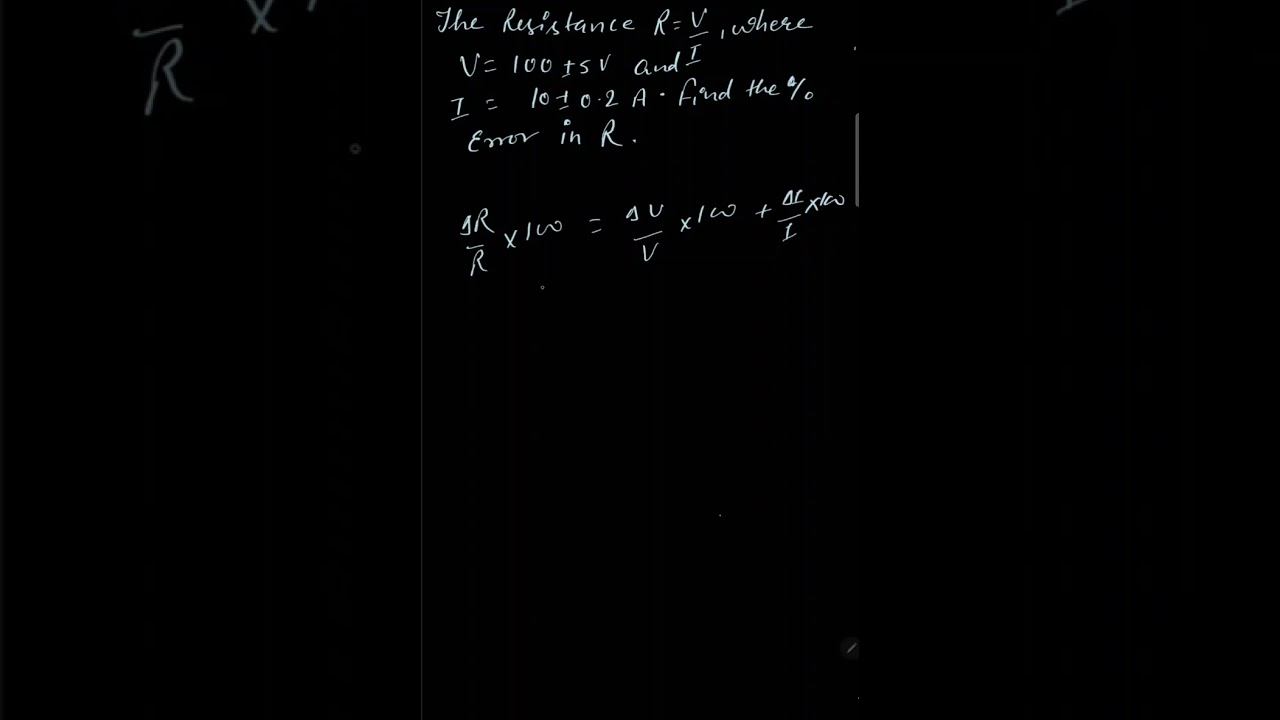 The Resistance R = V/I, where
V = 100 ± 5 V and
I = 10 ± 0.2 A. find the %
Error in R.
ΔR/R × 100 = ΔV/V × 100 + ΔI/I × 100